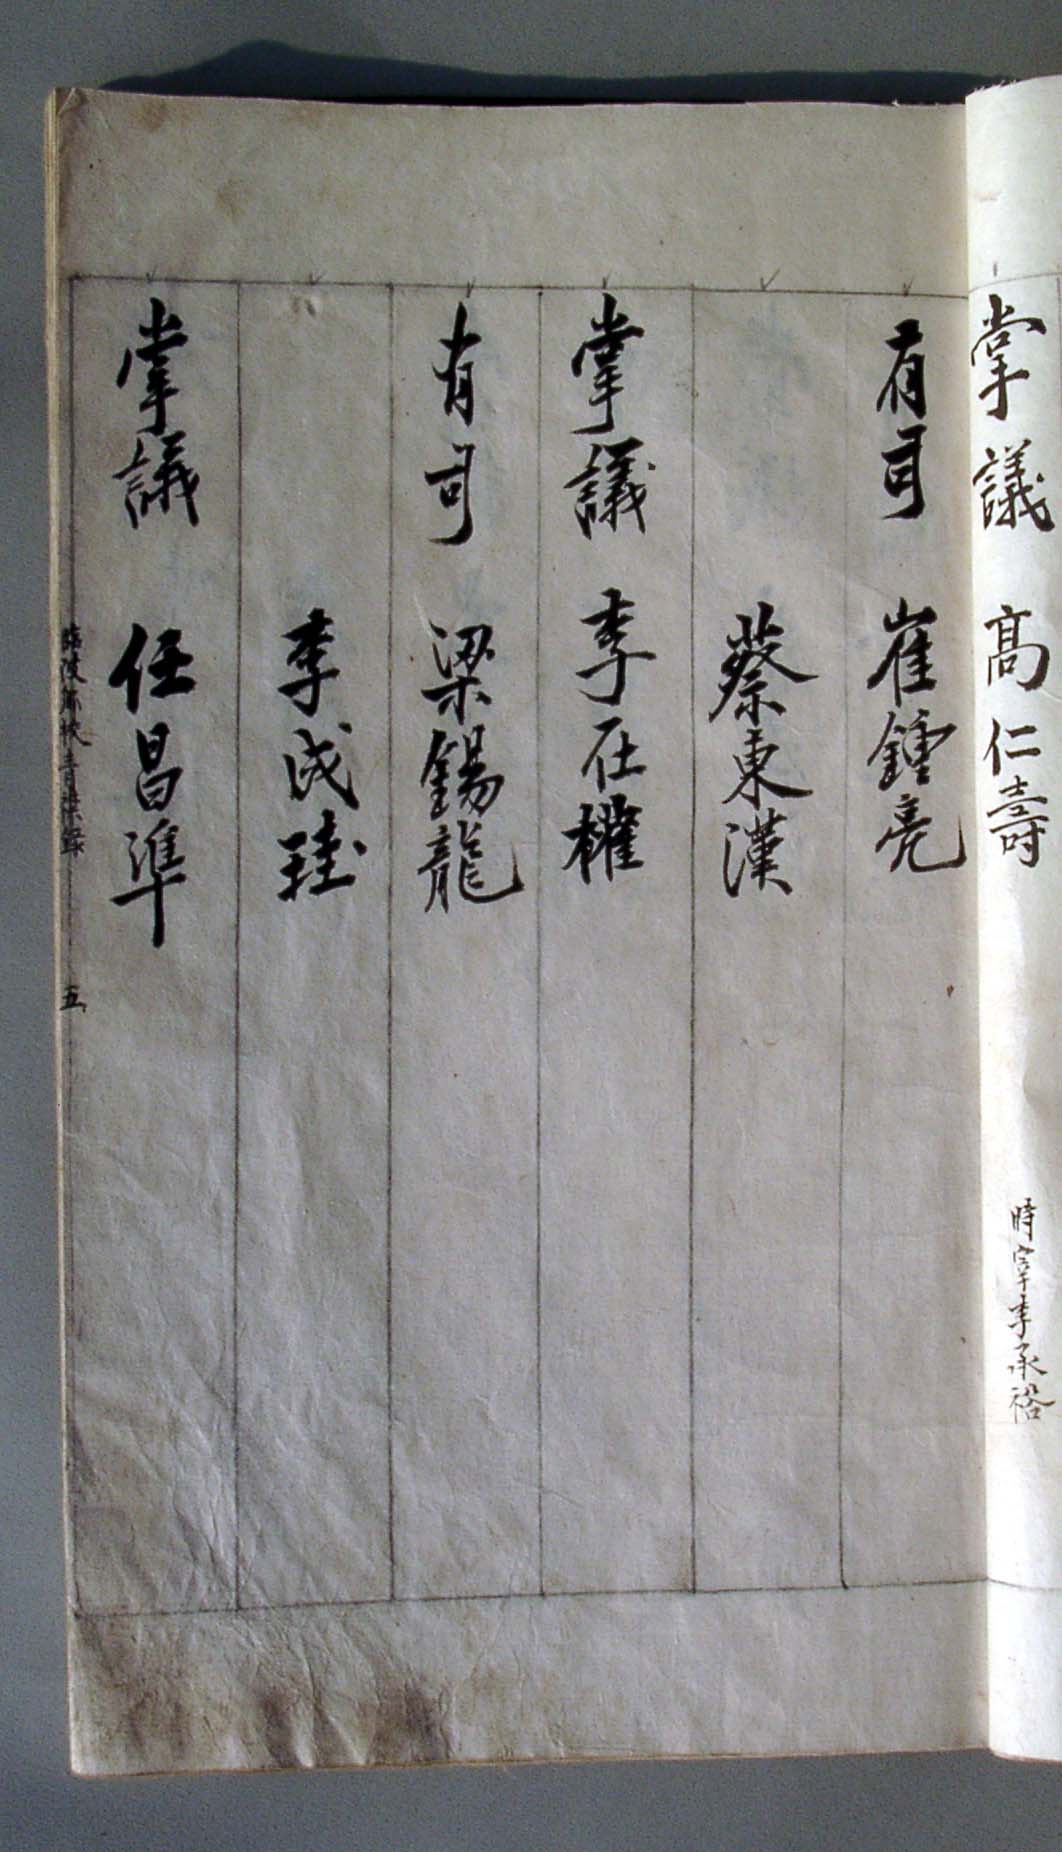 掌議 高仁壽 時宰李承裕
有司 崔鍾亮
蔡東漢
掌議 李在權
有司 梁錫龍
李成珪
掌議 任昌準
綾州鄕校靑衿錄 五